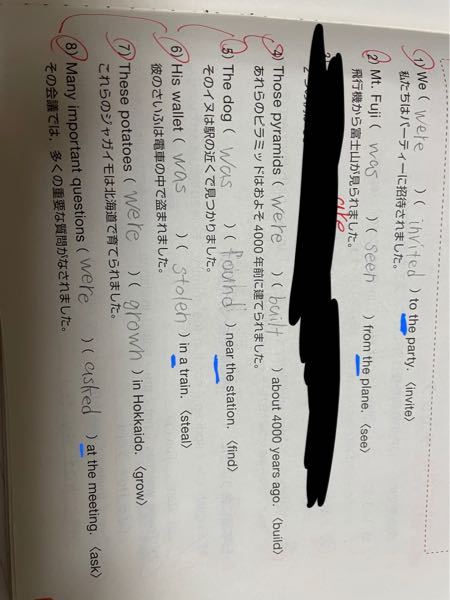 1) We ( were ) ( invited ) to the party. 〈invite〉
私たちはパーティーに招待されました。
2) Mt. Fuji ( was ) ( seen ) from the plane. 〈see〉
飛行機から富士山が見られました。
are
4) Those pyramids ( were ) ( built ) about 4000 years ago. 〈build〉
あれらのピラミッドはおよそ4000年前に建てられました。
5) The dog ( was ) ( found ) near the station. 〈find〉
そのイヌは駅の近くで見つかりました。
6) His wallet ( was ) ( stolen ) in a train. 〈steal〉
彼のさいふは電車の中で盗まれました。
7) These potatoes ( were ) ( grown ) in Hokkaido. 〈grow〉
これらのジャガイモは北海道で育てられました。
8) Many important questions ( were ) ( asked ) at the meeting. 〈ask〉
その会議では、多くの重要な質問がなされました。